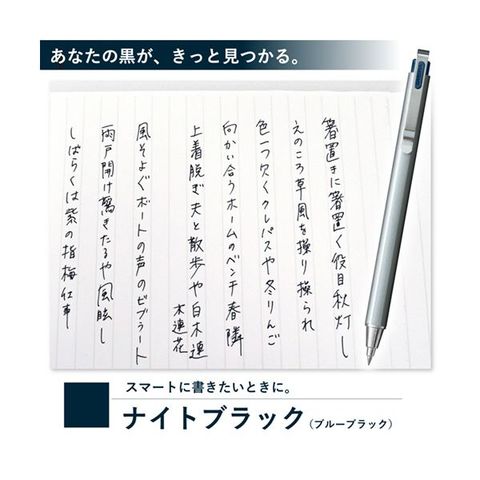 あなたの黒が、きっと見つかる。
箸置きに箸置く役目秋灯し
えのころ草風を操り操られ
色一つ欠くクレパスや冬りんご
向かい合うホームのベンチ春隣
上着脱ぎ夫と散歩や白木蓮
木蓮花
風そよぐボートの声のビブラート
雨戸開け萬きたるや風眩し
しばらくは紫の指梅仕事
スマートに書きたいときに。
ナイトブラック（ブルーブラック）